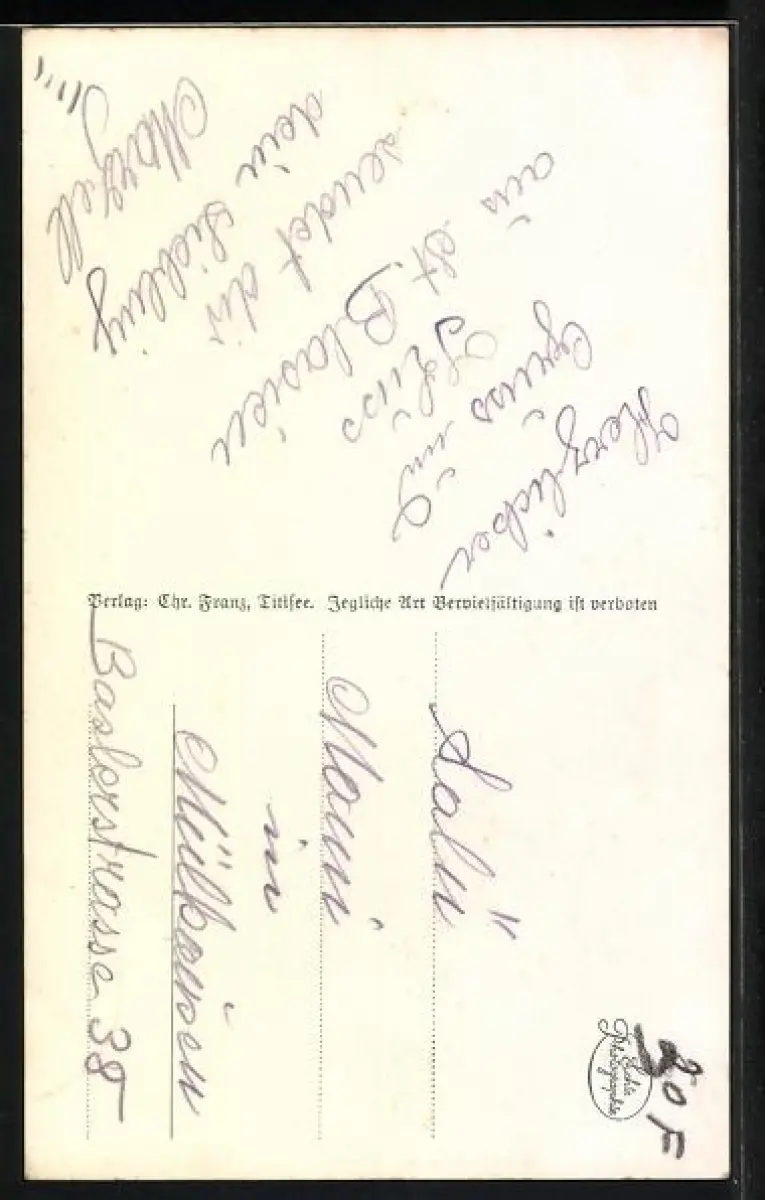 Herzlicher
Gruss und
Kuss
aus St Blasien
sendet dir
dein Liebling
Marzell
Verlag: Chr. Franz, Titisee. Jegliche Art Vervielfältigung ist verboten
Salü
Mami
in
Mülhausen
Baslerstrasse 38
Echte
Photographie
30 F